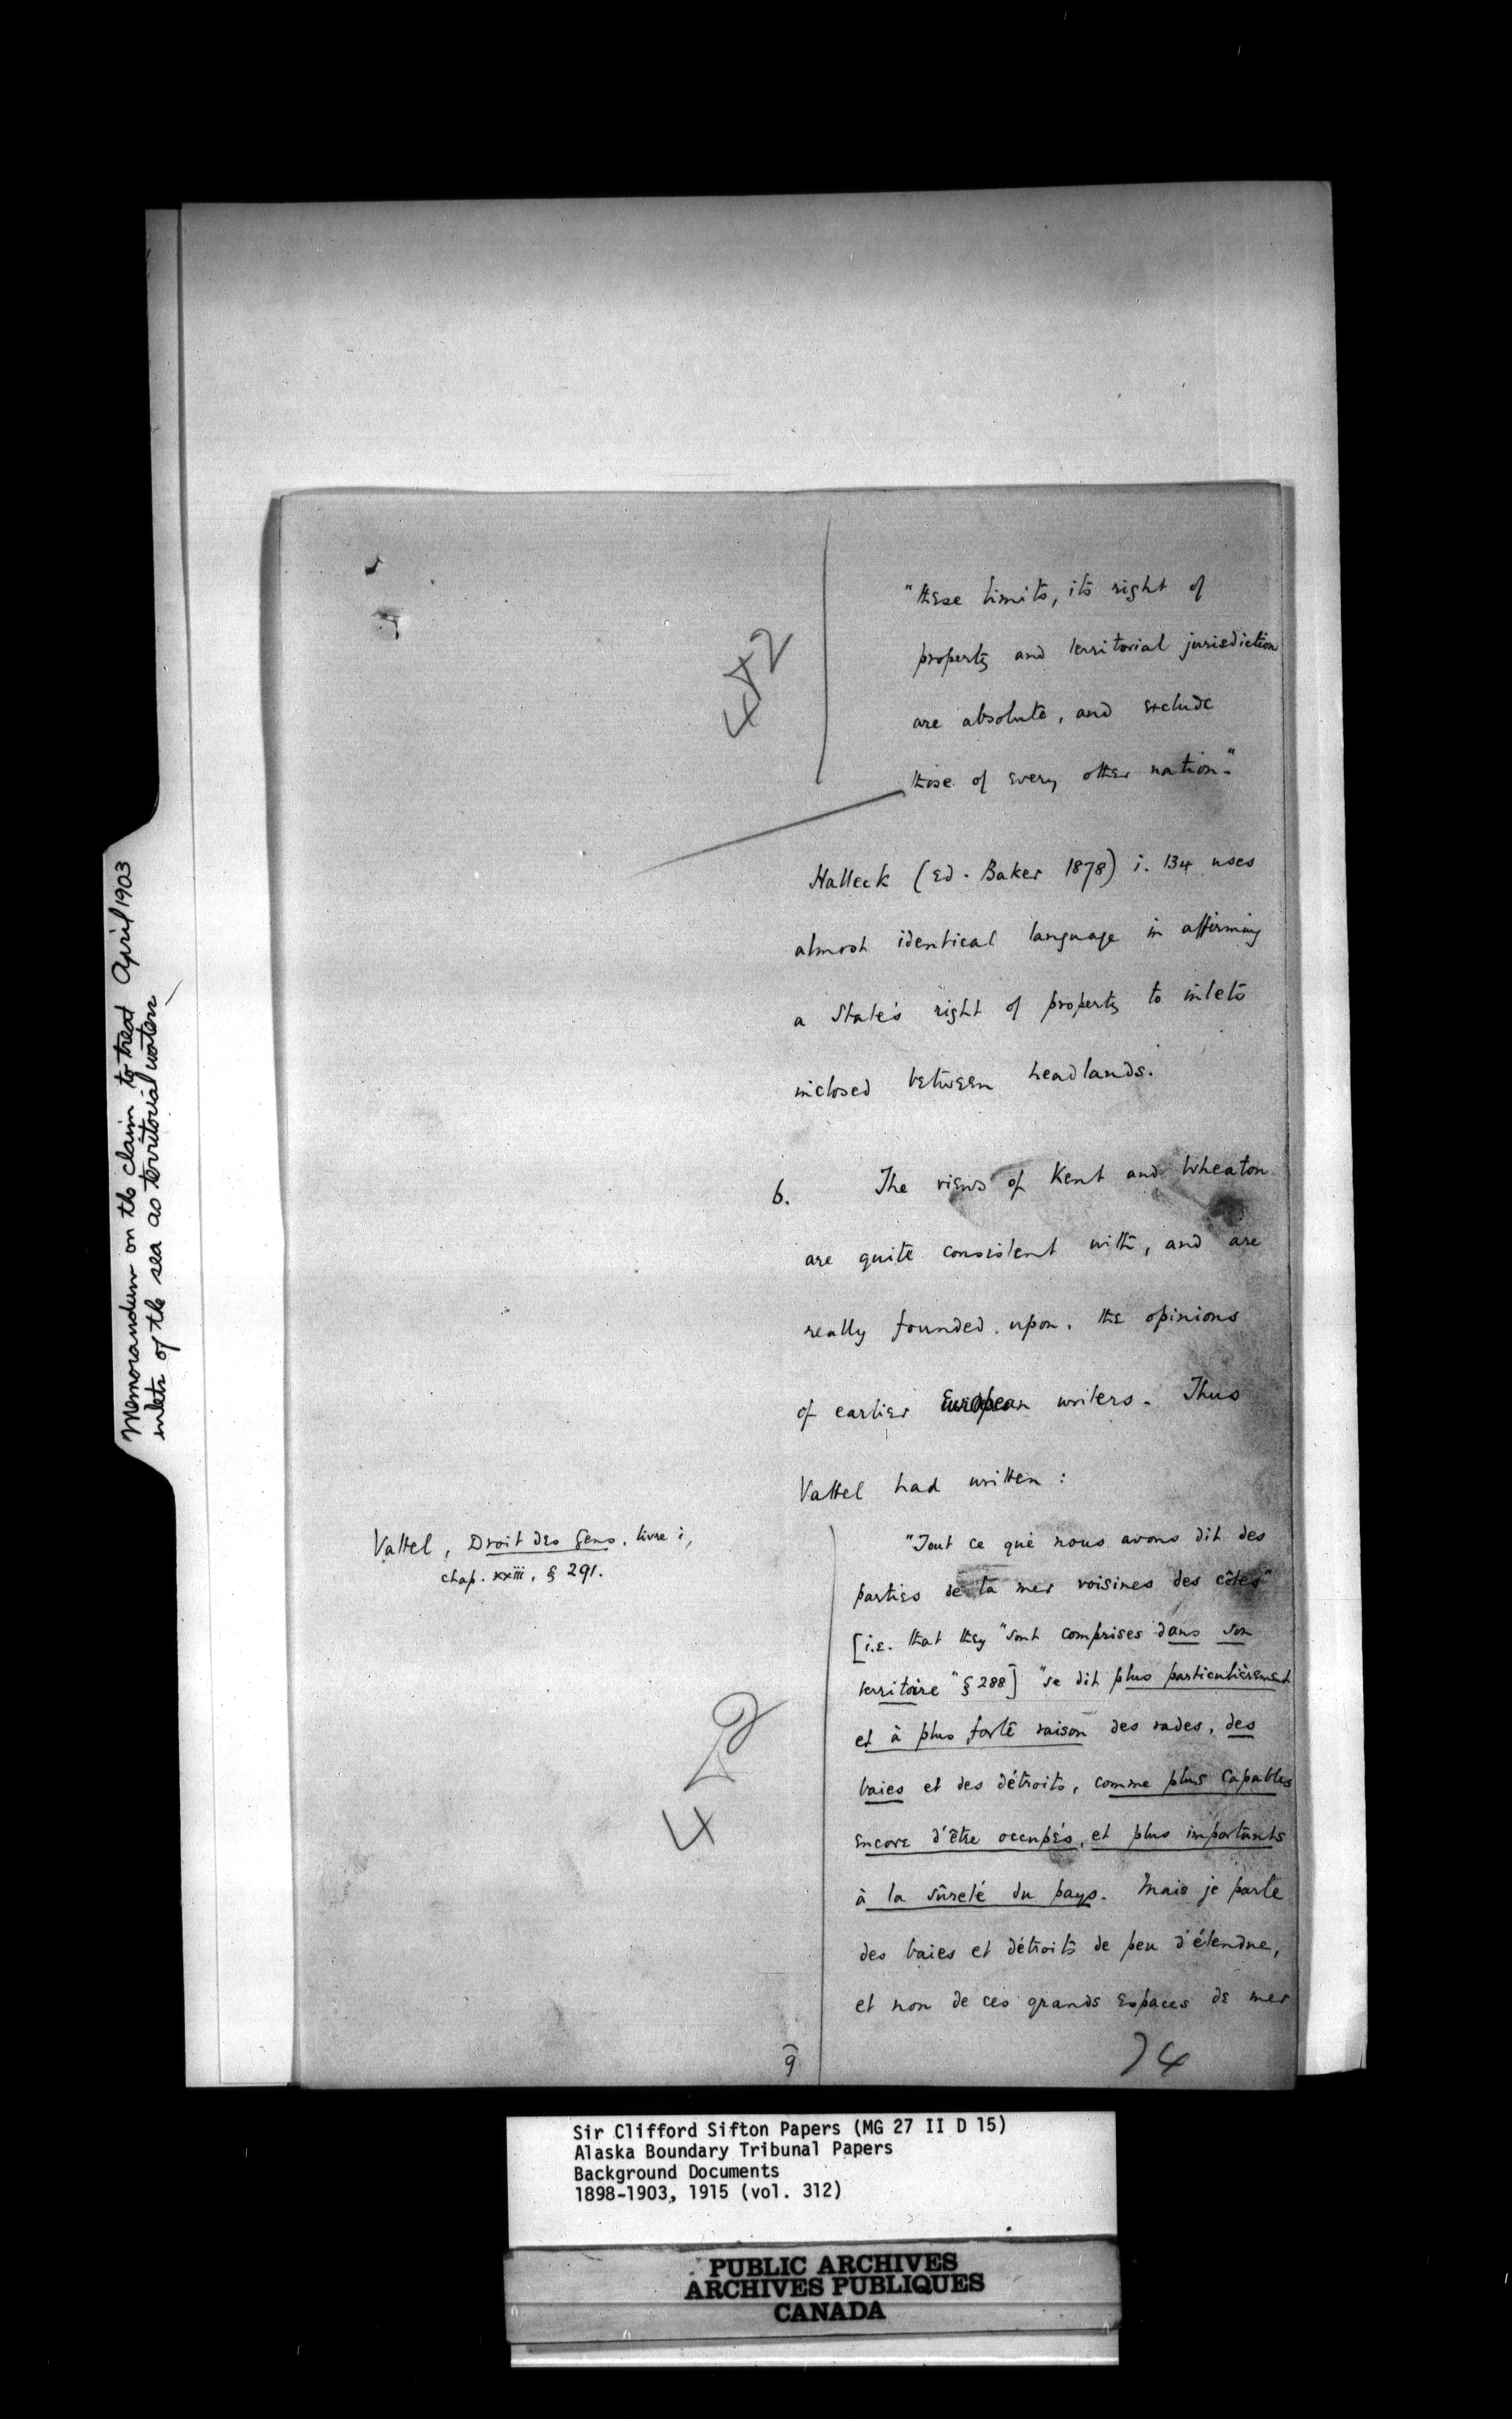 Memorandum on the claim to treat April 1903
inlets of the sea as territorial waters
"these limits, its right of
property and territorial jurisdiction
are absolute, and exclude
those of every other nation."
Halleck (ed. Baker 1878) i. 134 uses
almost identical language in affirming
a State's right of property to inlets
inclosed between headlands.
6. The views of Kent and Wheaton
are quite consistent with, and are
really founded upon, the opinions
of earlier European writers. Thus
Vattel had written:
Vattel, Droit des Gens, livre i,
chap. xxiii, § 291.
"Tout ce que nous avons dit des
parties de la mer voisines des côtes"
[i.e. that they "sont comprises dans son
territoire" § 288] "se dit plus particulièrement
et à plus forte raison des rades, des
baies et des détroits, comme plus capables
encore d'être occupés, et plus importants
à la sûreté du pays. Mais je parle
des baies et détroits de peu d'étendue,
et non de ces grands espaces de mer
9
74
Sir Clifford Sifton Papers (MG 27 II D 15)
Alaska Boundary Tribunal Papers
Background Documents
1898-1903, 1915 (vol. 312)
PUBLIC ARCHIVES
ARCHIVES PUBLIQUES
CANADA